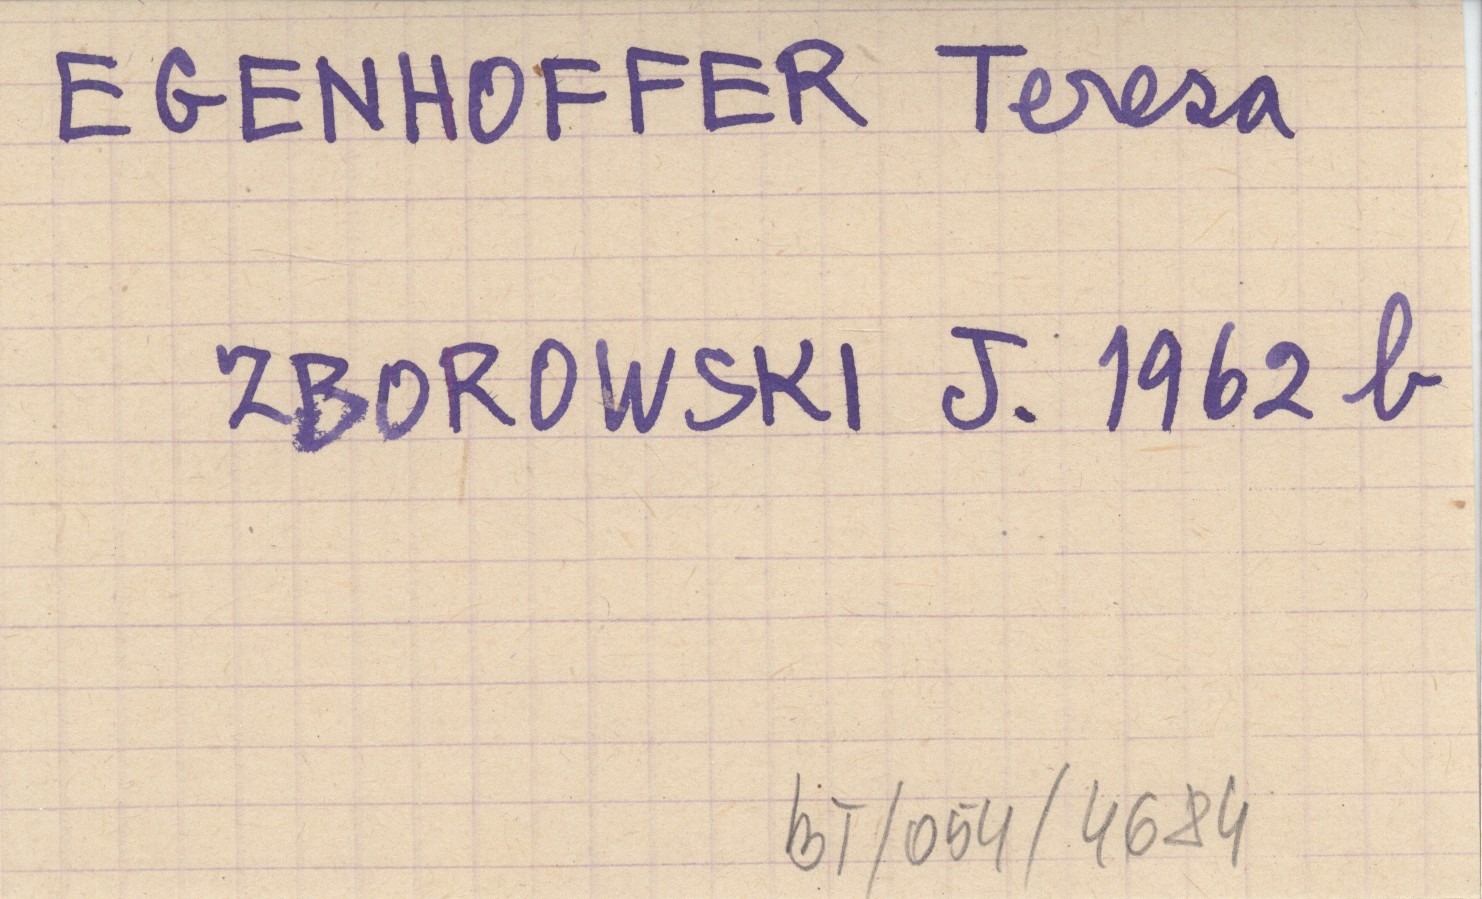 EGENHOFFER Teresa
ZBOROWSKI J. 1962 b
BT/054/4684